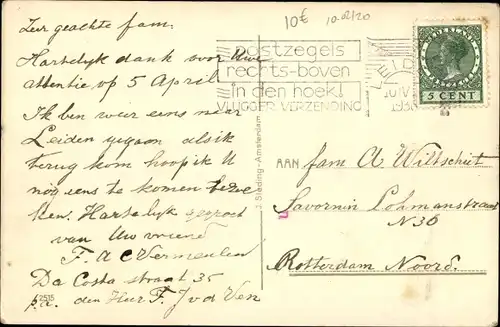 Zeer geachte fam.
Hartelyk dank voor Uwe
attentie op 5 April
Ik ben weer eens naar
Leiden gegaan als ik
terug kom hoop ik U
nog eens te komen bezoe
ken. Hartelyk gegroet
van Uw vriend
F. A C Vermeulen
Da Costa straat 35
p.a. den Heer F. J v d Ven
2515
J. Sleding-Amsterdam
10€ 10a2/20
postzegels
rechts-boven
in den hoek!
VLUGGER VERZENDING
LEID
10 IV
193
NEDERLAND
5 CENT
AAN fam A Wiltschut
Savornin Lohmanstraat
N 36
Rotterdam Noord.